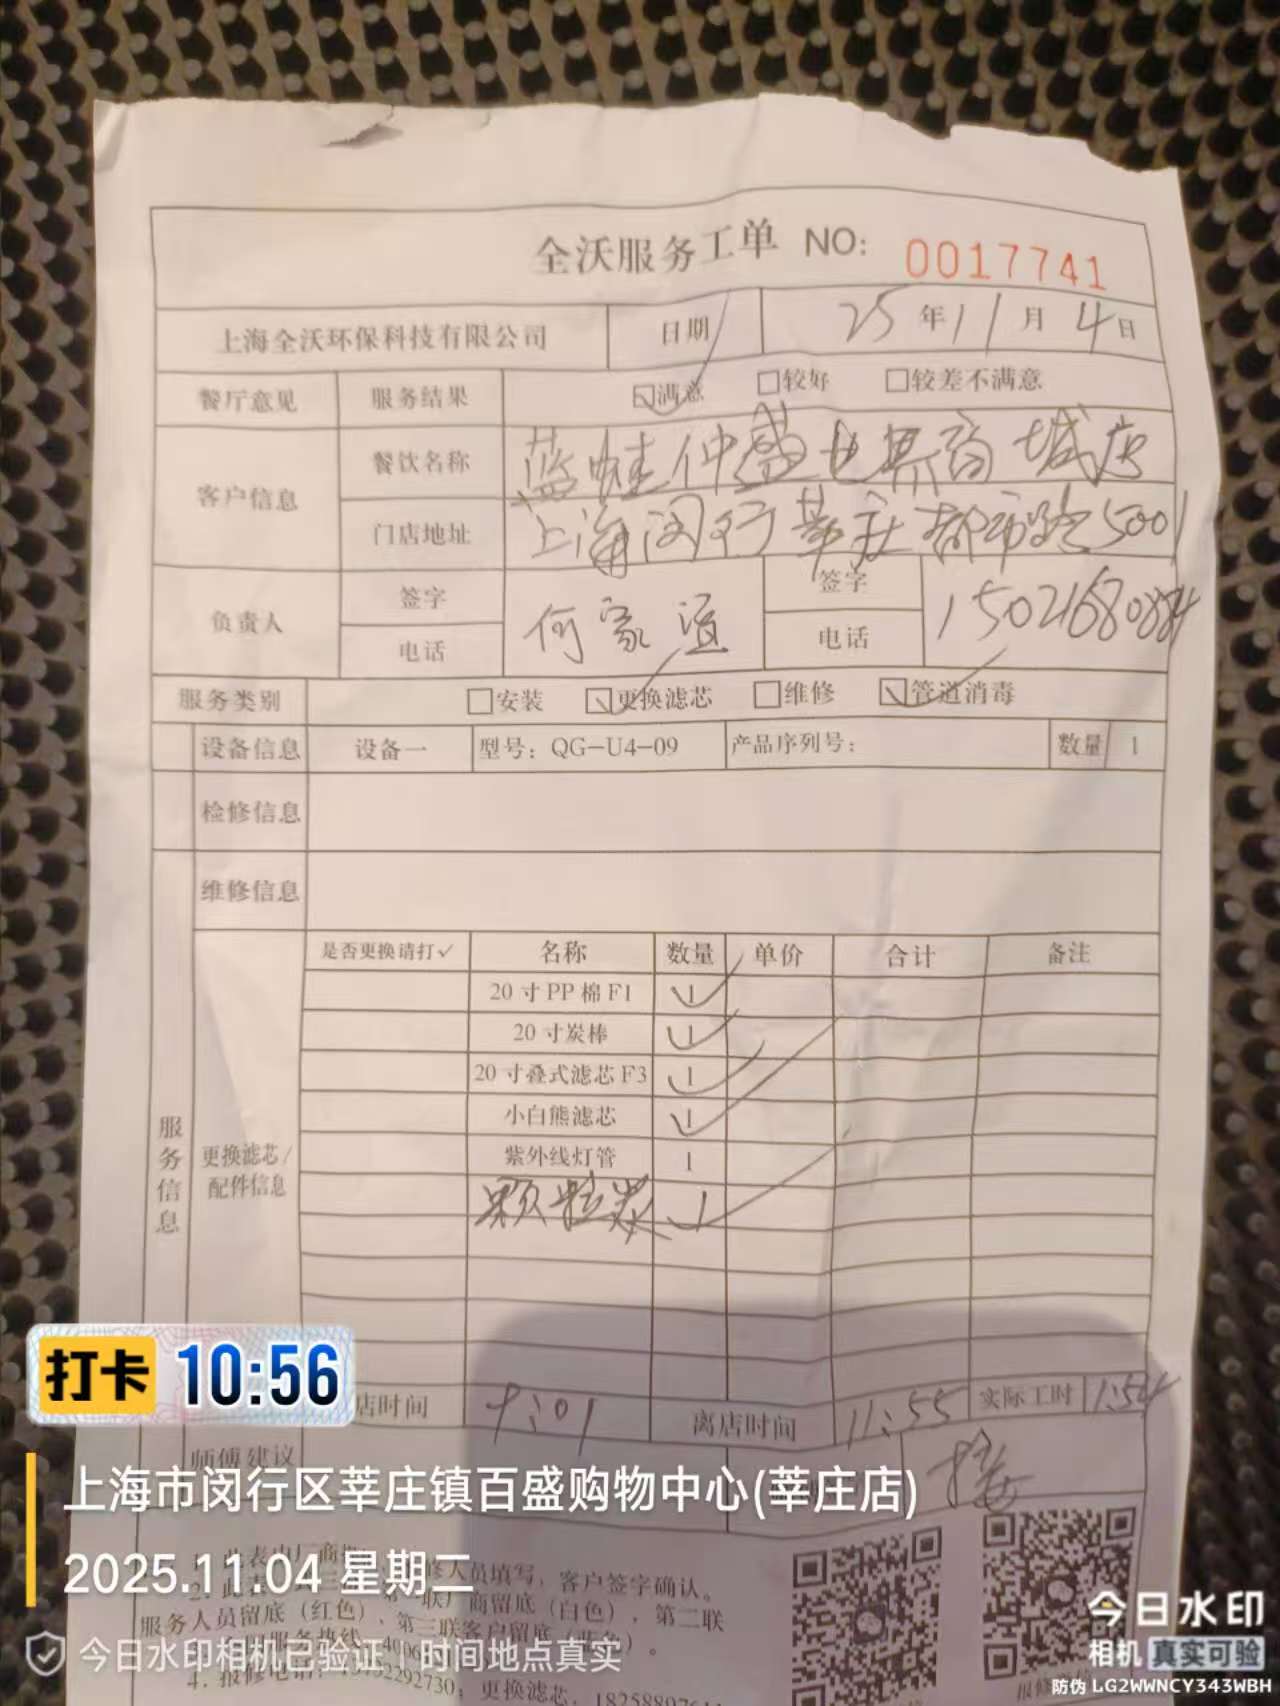 全沃服务工单 NO: 0017741
上海全沃环保科技有限公司 日期 25年11月4日
餐厅意见 服务结果 ☑满意 □较好 □较差不满意
客户信息 餐饮名称 蓝蛙仲盛世界商城店
门店地址 上海闵行莘庄都市路5001
负责人 签字 何家 签字
电话 电话 15021680884
服务类别 □安装 ☑更换滤芯 □维修 ☑管道消毒
设备信息 设备一 型号: QG-U4-09 产品序列号: 数量 1
检修信息
维修信息
服务信息 更换滤芯/配件信息
是否更换请打✓ 名称 数量 单价 合计 备注
20寸PP棉F1 1 ✓
20寸炭棒 1 ✓
20寸叠式滤芯F3 1 ✓
小白熊滤芯 1 ✓
紫外线灯管 1
颗粒炭 1 ✓
店时间 9:01 离店时间 11:55 实际工时 1:54
师傅建议
人员填写，客户签字确认。
联厂商留底（白色），第二联
服务人员留底（红色），第三联客户留底
4. 报修电话: 2292730; 更换滤芯
打卡 10:56
上海市闵行区莘庄镇百盛购物中心(莘庄店)
2025.11.04 星期二
今日水印相机已验证 | 时间地点真实
今日水印
相机 真实可验
防伪 LG2WWNCY343WBH